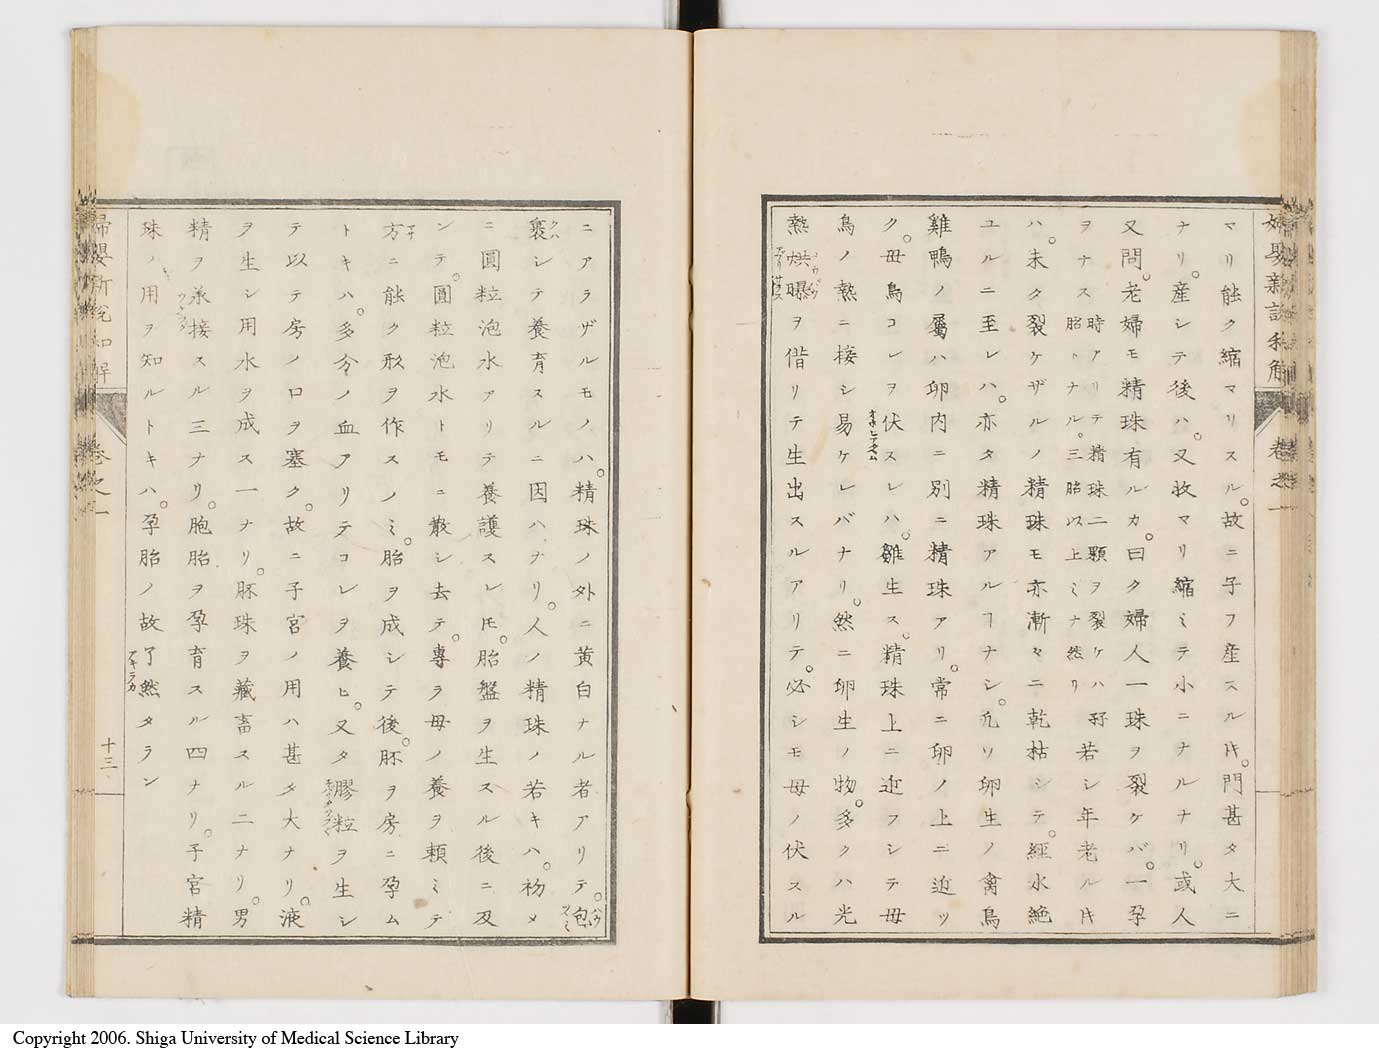 マリ能ク縮マリスル。故ニ子フ産スル𪜈。門甚タ大ニ
ナリ。産シテ後ハ。又收マリ縮ミテ小ニナルナリ。或人
又問。老婦モ精珠有ルカ。曰ク婦人一珠ヲ裂ケバ。一孕
ヲナス 時アリテ精珠二顆ヲ裂ケハ
胎トナル。三胎以上ミナ然リ 若シ年老ル𪜈
ハ。未タ裂ケザルノ精珠モ亦漸々ニ乾枯シテ。經水絶
ユルニ至レハ。亦タ精珠アルヿナシ。凢ソ卵生ノ禽鳥
雞鴨ノ屬ハ卵内ニ別ニ精珠アリ。常ニ卵ノ上ニ近ツ
ク。母鳥コレヲ伏スレハ。雛生ス。精珠上ニ近フシテ母
鳥ノ熱ニ接シ易ケレバナリ。然ニ卵生ノ物。多クハ光
熱烘曝ヲ借リテ生出スルアリテ。必シモ母ノ伏スル
卷之一
ニアラザルモノハ。精珠ノ外ニ黄白ナル者アリテ。包
裹シテ養育スルニ因ハナリ。人ノ精珠ノ若キハ。初メ
ニ圓粒泡水アリテ養護スレ𪜈。胎盤ヲ生スル後ニ及
ンテ。圓粒泡水トモニ散シ去テ。專ラ母ノ養ヲ頼ミテ
方ニ能ク形ヲ作スノミ。胎ヲ成シテ後。胚ヲ房ニ孕ム
トキハ。多分ノ血アリテコレヲ養ヒ。又タ膠粒ヲ生シ
テ以テ房ノ口ヲ塞ク。故ニ子宮ノ用ハ甚タ大ナリ。液
ヲ生シ用水ヲ成ス一ナリ。胚珠ヲ藏畜スル二ナリ。男
精ヲ承接スル三ナリ。胞胎ヲ孕育スル四ナリ。子宮精
珠ノ用ヲ知ルトキハ。孕胎ノ故了然タラン
婦嬰新説和解
卷之一
十三
Copyright 2006. Shiga University of Medical Science Library